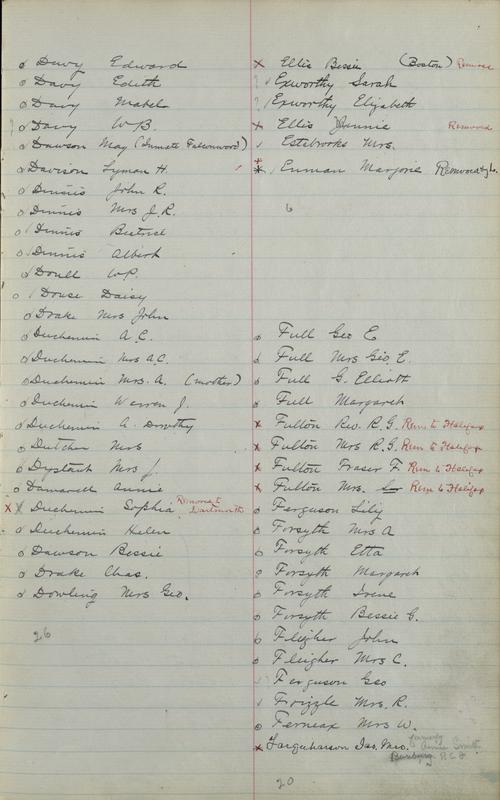 Davy Edward
Davy Edith
Davy Mabel
Davy W.B.
Dawson May (Inmate Falconwood)
Davison Lyman H.
Dennis John R.
Dennis Mrs J.R.
Dennis Beatrice
Dennis Albert
Doull W.P.
Douse Daisy
Drake Mrs John
Duchemin A.C.
Duchemin Mrs A.C.
Duchemin Mrs. A. (mother)
Duchemin Warren J.
Duchemin A. Dorothy
Dutcher Mrs
Mrs J.
Annie
Duchemin Sophia Removed to Dartmouth
Duchemin Helen
Dawson Bessie
Drake Chas.
Dowling Mrs Geo.
26
Ellis Bessie (Boston)
Exworthy Sarah
Exworthy Elizabeth
Ellis Removed
Estabrooks Mrs.
Enman Marjorie
6
Full Geo E
Full Mrs Geo. E.
Full G. Elliott
Full Margaret
Fulton Rev. R.G. Rem to Halifax
Fulton Mrs R.G. Rem to Halifax
Fulton Fraser F. Rem to Halifax
Fulton Mrs. Rem to Halifax
Ferguson Lily
Forsyth Mrs A
Forsyth Etta
Forsyth Margaret
Forsyth Irene
Forsyth Bessie G.
Fleigher John
Fleigher Mrs C.
Ferguson Geo
Frizzle Mrs. R.
Ferneax Mrs W.
Farquharson Jas. Mrs.
formerly Annie Smith
20